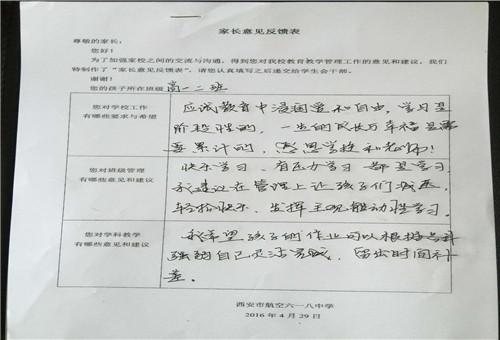 家长意见反馈表
尊敬的家长：
您好！
为了加强家校之间的交流与沟通，得到您对我校教育教学管理工作的意见和建议，我们
特制作了“家长意见反馈表”，请您认真填写之后递交给学生会干部。
谢谢！
您的孩子所在班级 高一二班
您对学校工作
有哪些要求与希望
应试教育中浸润爱和自由，学习是
阶段性的，一生的成长万幸福是需
要累计的，感恩学校和老师！
您对班级管理
有哪些意见和建议
快乐学习，有压力学习 都是学习
我建议在管理上让孩子们减压，
轻松快乐，发挥主观能动性学习。
您对学科教学
有哪些意见和建议
我希望孩子的作业可以根据
自己是 留出时间补
差。
西安市航空六一八中学
2016 年 4 月 29 日